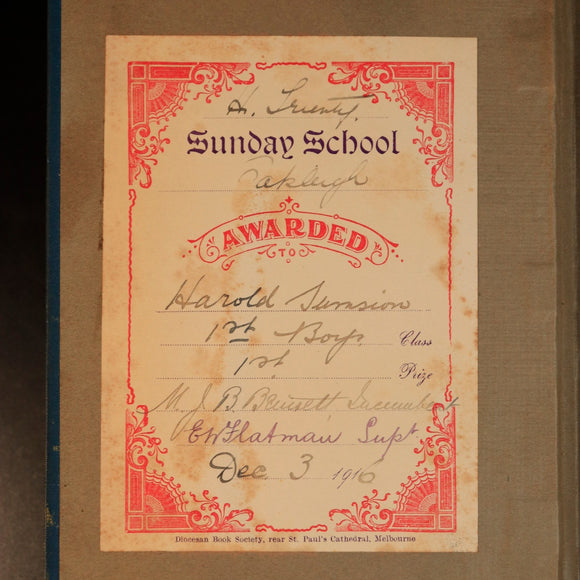 H. Trinity.
Sunday School
Oakleigh
AWARDED
TO
Harold Sumsion
1st Boys Class
1st Prize
M. J. B. Bennett, Incumbent
EW Flatman Supt
Dec 3 1916
Diocesan Book Society, rear St. Paul's Cathedral, Melbourne